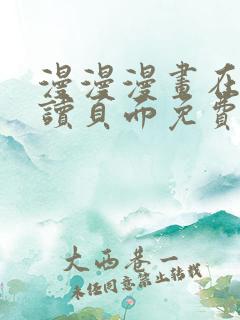 漫漫漫畫在
讀頁面免費
大西巷一
未经同意禁止转载